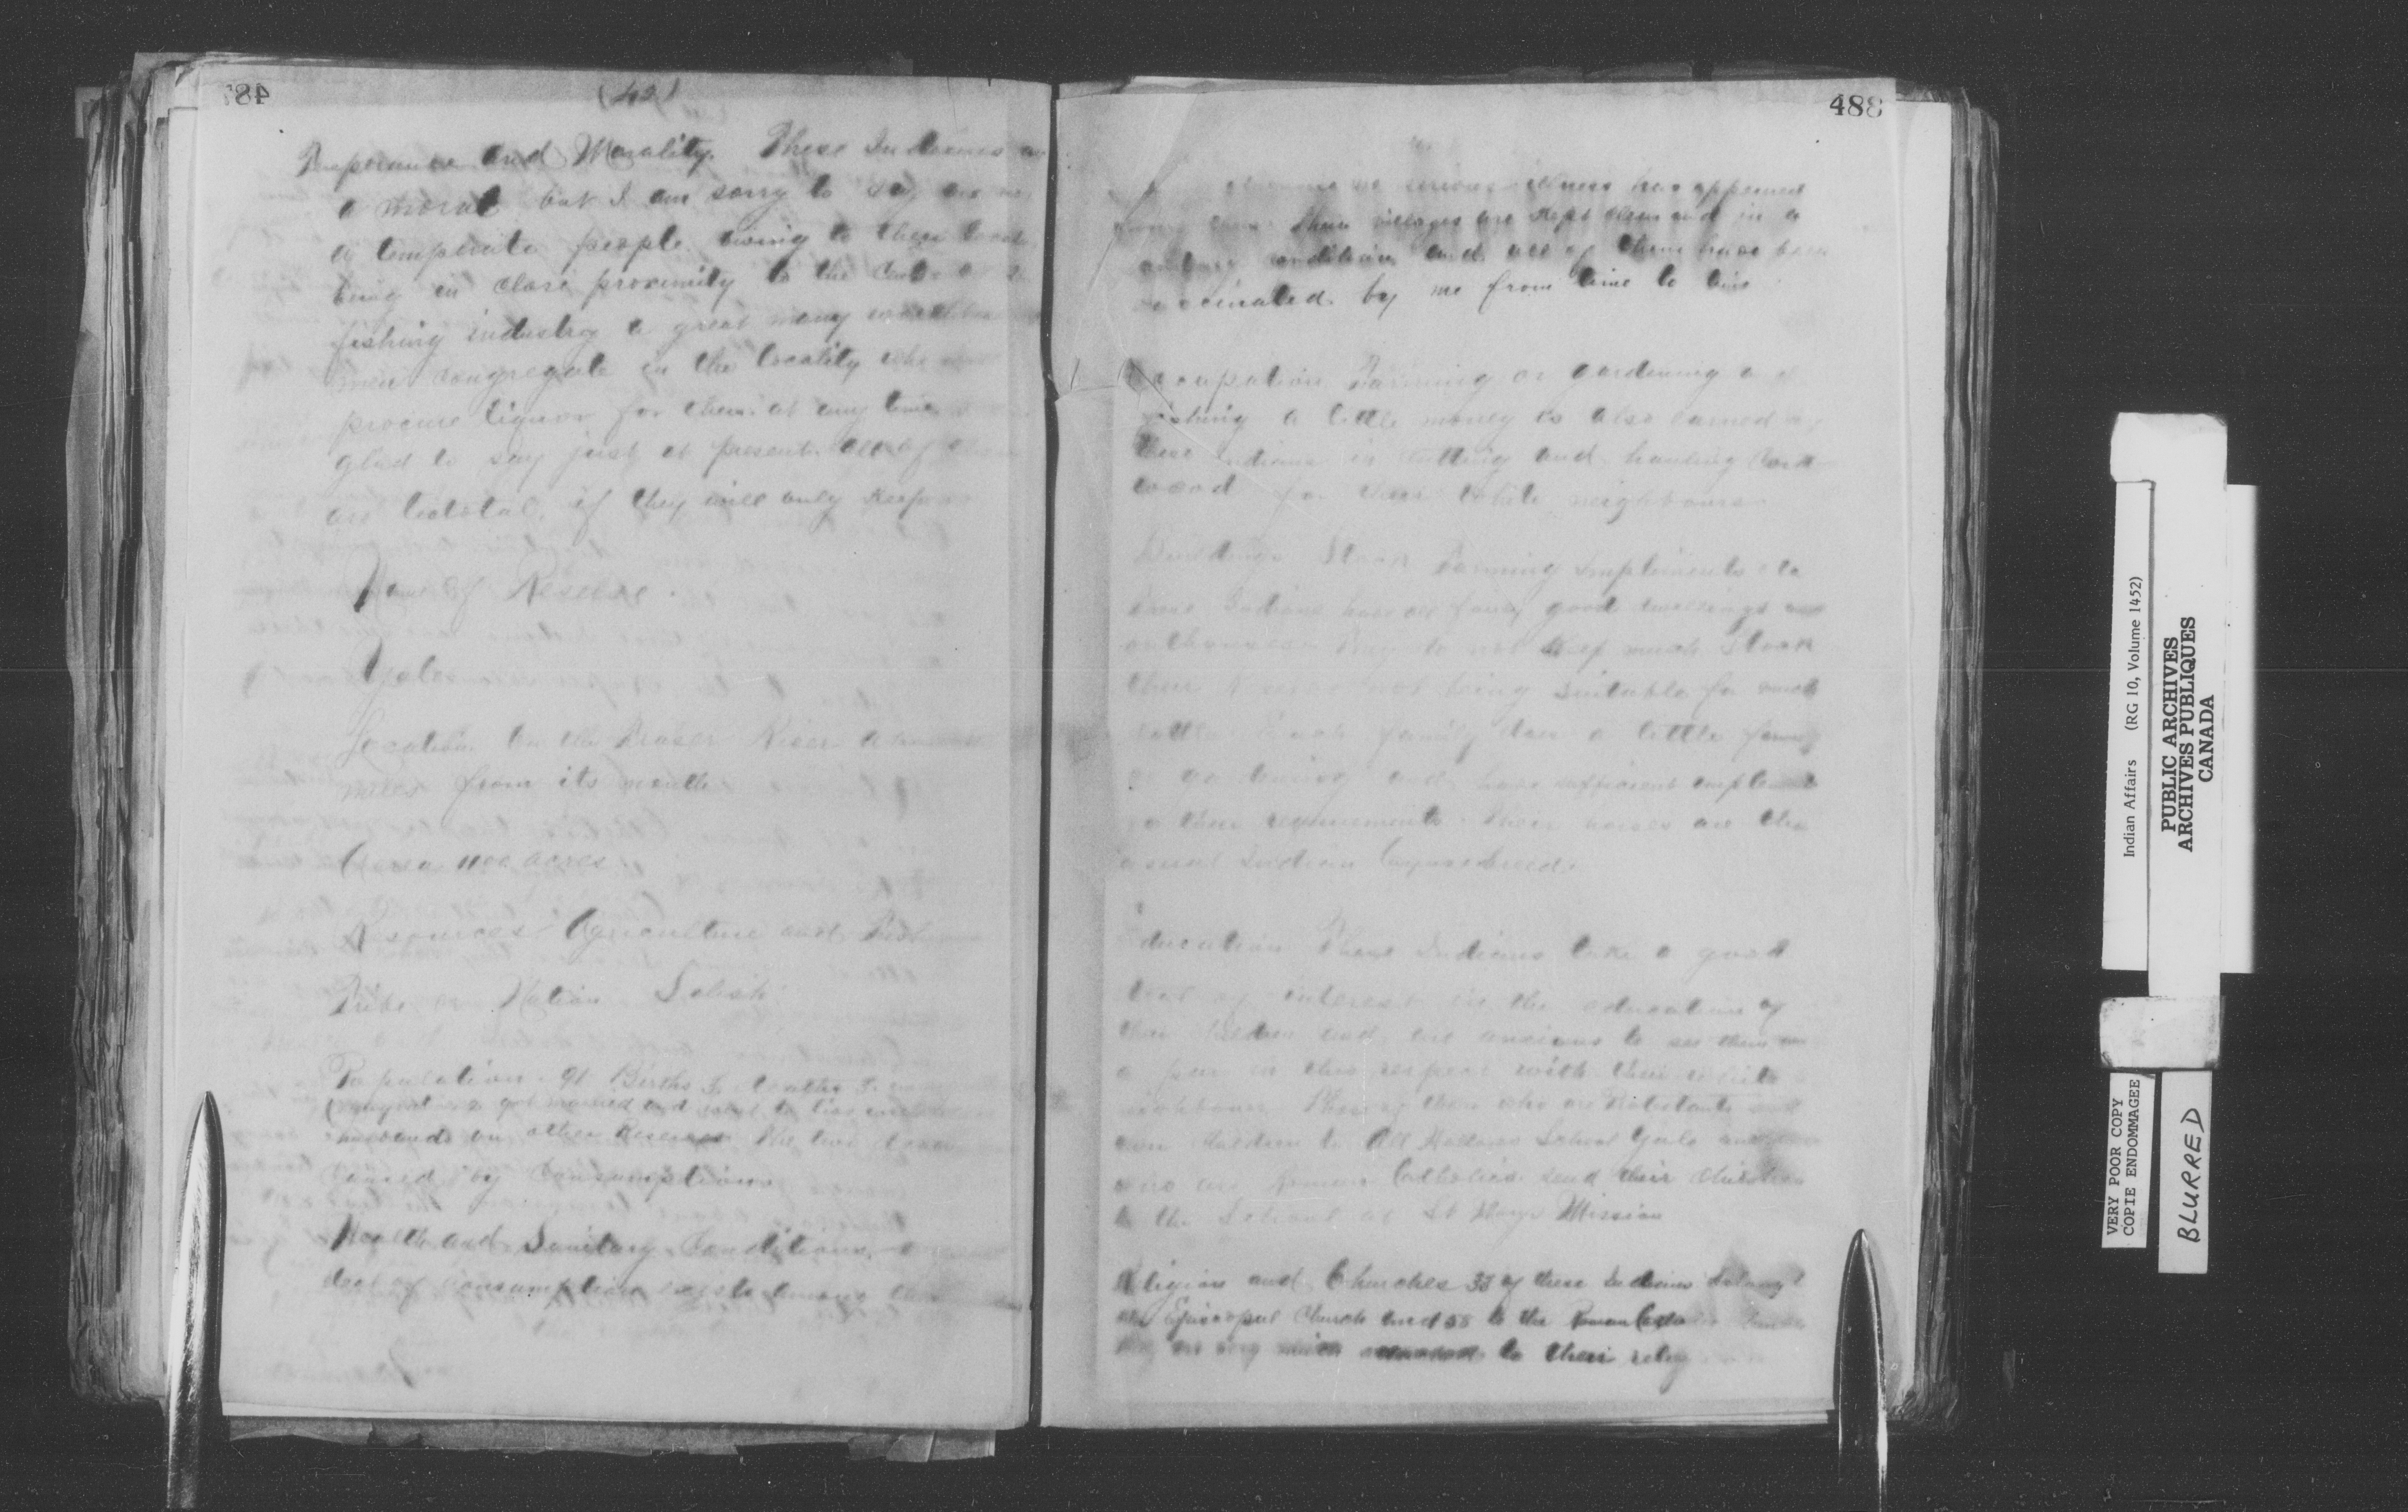 487
(42)
Temperance and Morality. These Indians are
a moral but I am sorry to say are not
a temperate people owing to their
being in close proximity to the
fishing industry a great many
men congregate in the locality who
procure liquor for them at any time
glad to say just at present all of them
are teetotal, if they will only keep
Name of Reserve.
Yale
Location On the Fraser River
miles from its mouth
Area 1100 acres
Resources Agriculture and
Tribe or Nation Salish
Population. 91 Births Deaths
got married and went to live
husbands on other Reserves The two
caused by Consumption
Health and Sanitary Conditions. A
deal of consumption exists among them
488
no serious illness has appeared
among them Their villages are kept clean and in a
sanitary condition and all of them have been
vaccinated by me from time to time
Occupation Farming or gardening and
fishing a little money is also earned by
these Indians in cutting and hauling Cord
wood for their White neighbours
Buildings Stock Farming Implements etc
These Indians have all fairly good dwellings and
outhouses They do not keep much Stock
their Reserve not being suitable for much
cattle Each family does a little farming
or gardening and have sufficient implements
for their requirements. Their horses are the
usual Indian Cayuse breed.
Education These Indians take a good
deal of interest in the education of
their children and are anxious to see them on
a par in this respect with their white
neighbours Those of them who are Protestants send
their children to All Hallows School Yale and those
who are Roman Catholics send their children
to the School at St Marys Mission
Religion and Churches 33 of these Indians belong to
the Episcopal Church and 58 to the Roman Catholic
they are very much attached to their
Indian Affairs (RG 10, Volume 1452)
PUBLIC ARCHIVES
ARCHIVES PUBLIQUES
CANADA
VERY POOR COPY
COPIE ENDOMMAGEE
BLURRED